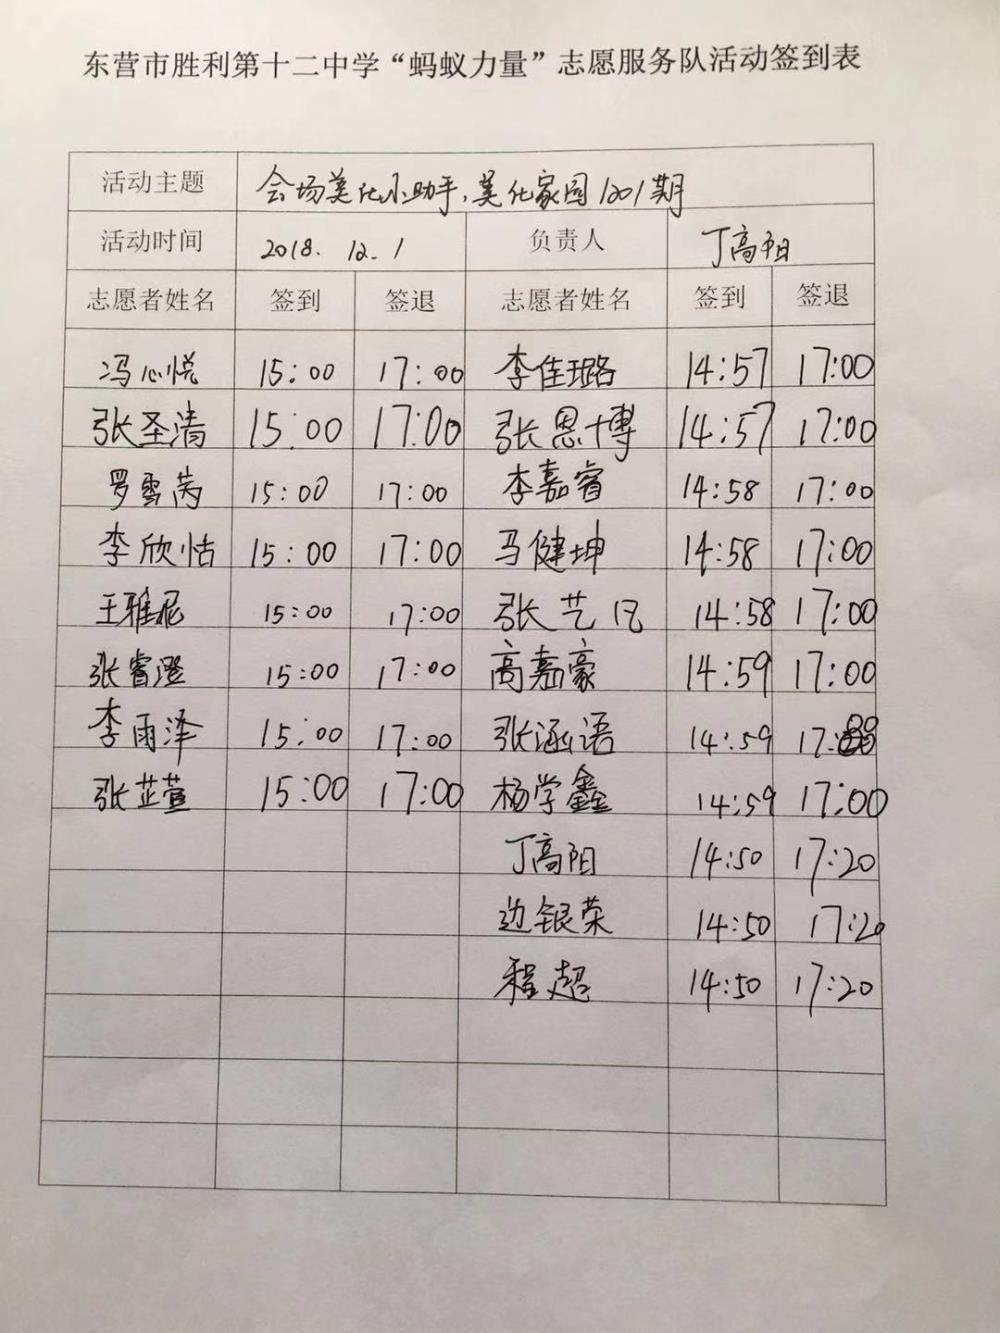 东营市胜利第十二中学“蚂蚁力量”志愿服务队活动签到表
活动主题 会场美化小助手，美化家园1201期
活动时间 2018.12.1 负责人 丁高阳
志愿者姓名 签到 签退 志愿者姓名 签到 签退
冯心悦 15:00 17:00 李佳璐 14:57 17:00
张圣清 15:00 17:00 张恩博 14:57 17:00
罗雪芮 15:00 17:00 李嘉睿 14:58 17:00
李欣恬 15:00 17:00 马健坤 14:58 17:00
王雅尼 15:00 17:00 张艺凡 14:58 17:00
张睿澄 15:00 17:00 高嘉豪 14:59 17:00
李雨泽 15:00 17:00 张涵语 14:59 17:
张芷萱 15:00 17:00 杨学鑫 14:59 17:00
丁高阳 14:50 17:20
边银荣 14:50 17:20
程超 14:50 17:20